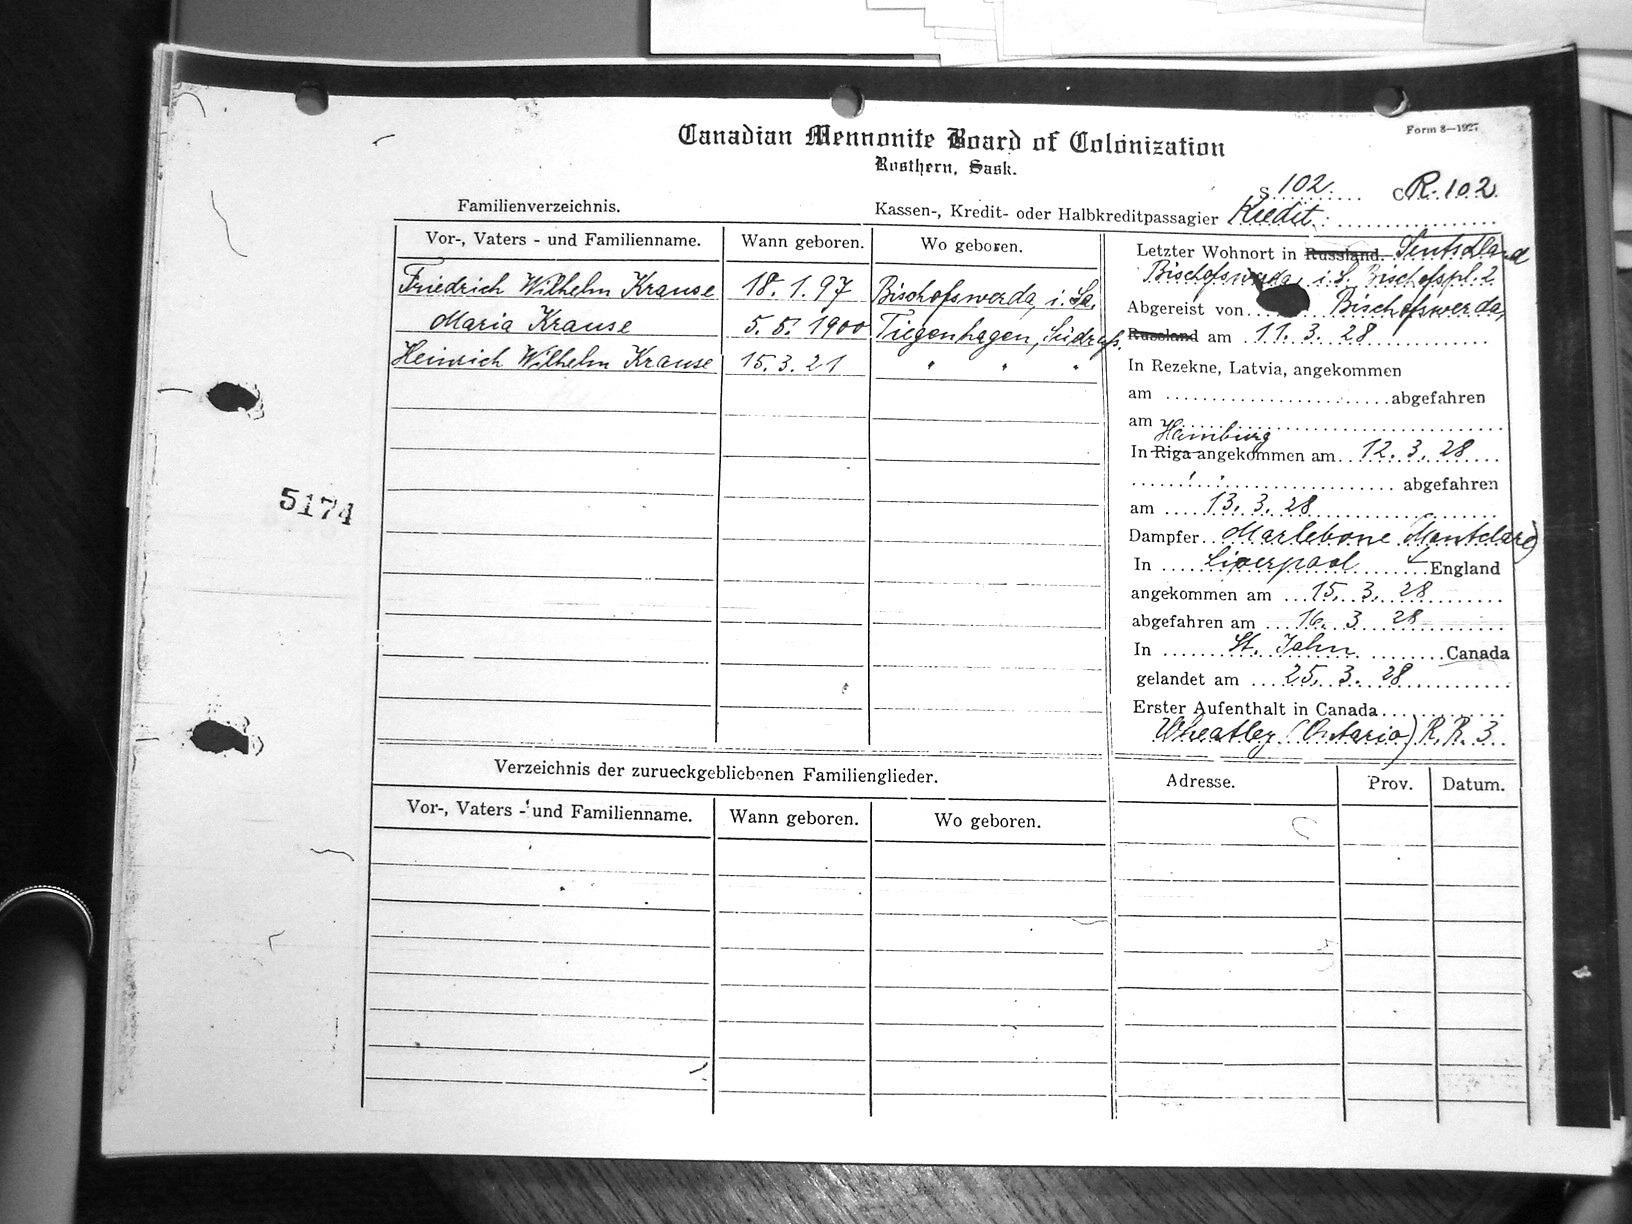 Form 8—1927
Canadian Mennonite Board of Colonization
Rosthern, Sask.
S 102. C R. 102
Familienverzeichnis. Kassen-, Kredit- oder Halbkreditpassagier Kredit.
Vor-, Vaters - und Familienname. Wann geboren. Wo geboren.
Friedrich Wilhelm Krause 18. 1. 97 Bischofswerda, i. Sa.
Maria Krause 5. 5. 1900 Tiegenhagen, Südrußl.
Heinrich Wilhelm Krause 15. 3. 21 " " "
Letzter Wohnort in Russland. Deutschland
Bischofswerda, i. S. Bischofspl. 2
Abgereist von Bischofswerda,
Russland am 11. 3. 28
In Rezekne, Latvia, angekommen
am abgefahren
am
Hamburg
In Riga angekommen am 12. 3. 28
abgefahren
am 13. 3. 28
Dampfer Marlebone Montclare)
In Liverpool England
angekommen am 15. 3. 28
abgefahren am 16. 3 28
In St. John Canada
gelandet am 25. 3. 28
Erster Aufenthalt in Canada
Wheatley (Ontario) R. R. 3.
5174
Verzeichnis der zurueckgebliebenen Familienglieder.
Vor-, Vaters - und Familienname. Wann geboren. Wo geboren.
Adresse. Prov. Datum.